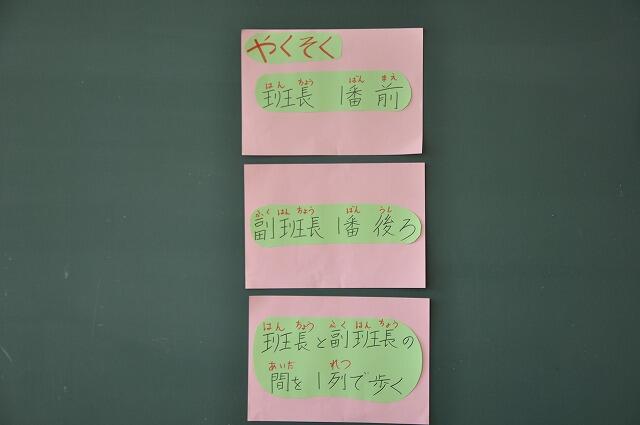 やくそく
はん ちょう ばん まえ
班長 1番 前
ふく はん ちょう ばん うし
副班長 1番 後ろ
はん ちょう ふく はん ちょう
班長と副班長の
あいだ れつ
間を 1列で歩く